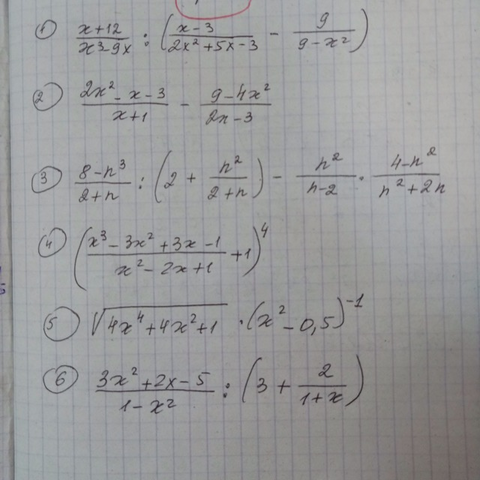 ① (x+12)/(x³-9x) : ((x-3)/(2x²+5x-3) - 9/(9-x²))
② (2x²-x-3)/(x+1) - (9-4x²)/(2x-3)
③ (8-n³)/(2+n) : (2 + n²/(2+n)) - n²/(n-2) · (4-n²)/(n²+2n)
④ ((x³-3x²+3x-1)/(x²-2x+1) + 1)⁴
⑤ √(4x⁴+4x²+1) · (x²-0,5)⁻¹
⑥ (3x²+2x-5)/(1-x²) : (3 + 2/(1+x))